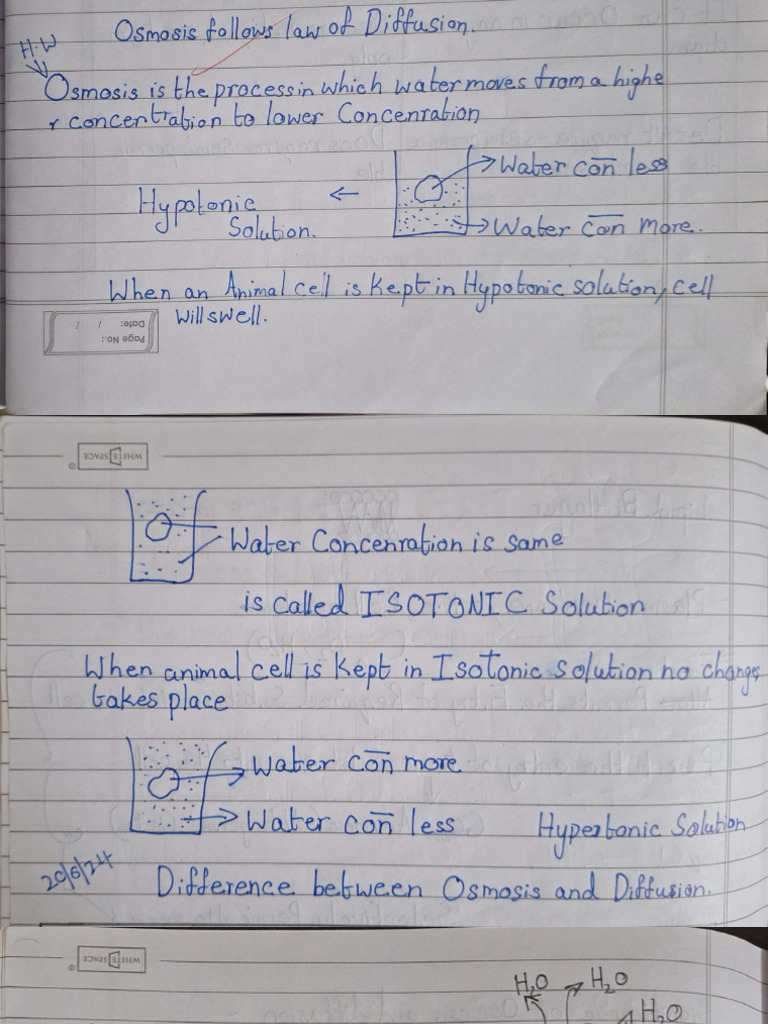 Osmosis follows law of Diffusion.
H.W
Osmosis is the process in which water moves from a highe
r concentration to lower Concenration
Water con̅ less
Hypotonic ←
Solution.
Water con̅ more.
When an Animal cell is kept in Hypotonic solution, cell
will swell.
Page No.:
Date: / /
WHITE SPACE
Water Concenration is same
is called ISOTONIC Solution
When animal cell is kept in Isotonic solution no change
takes place
Water con̅ more
Water con̅ less Hypertonic Solution
20/6/24
Difference between Osmosis and Diffusion.
WHITE SPACE
H₂O → H₂O
H₂O